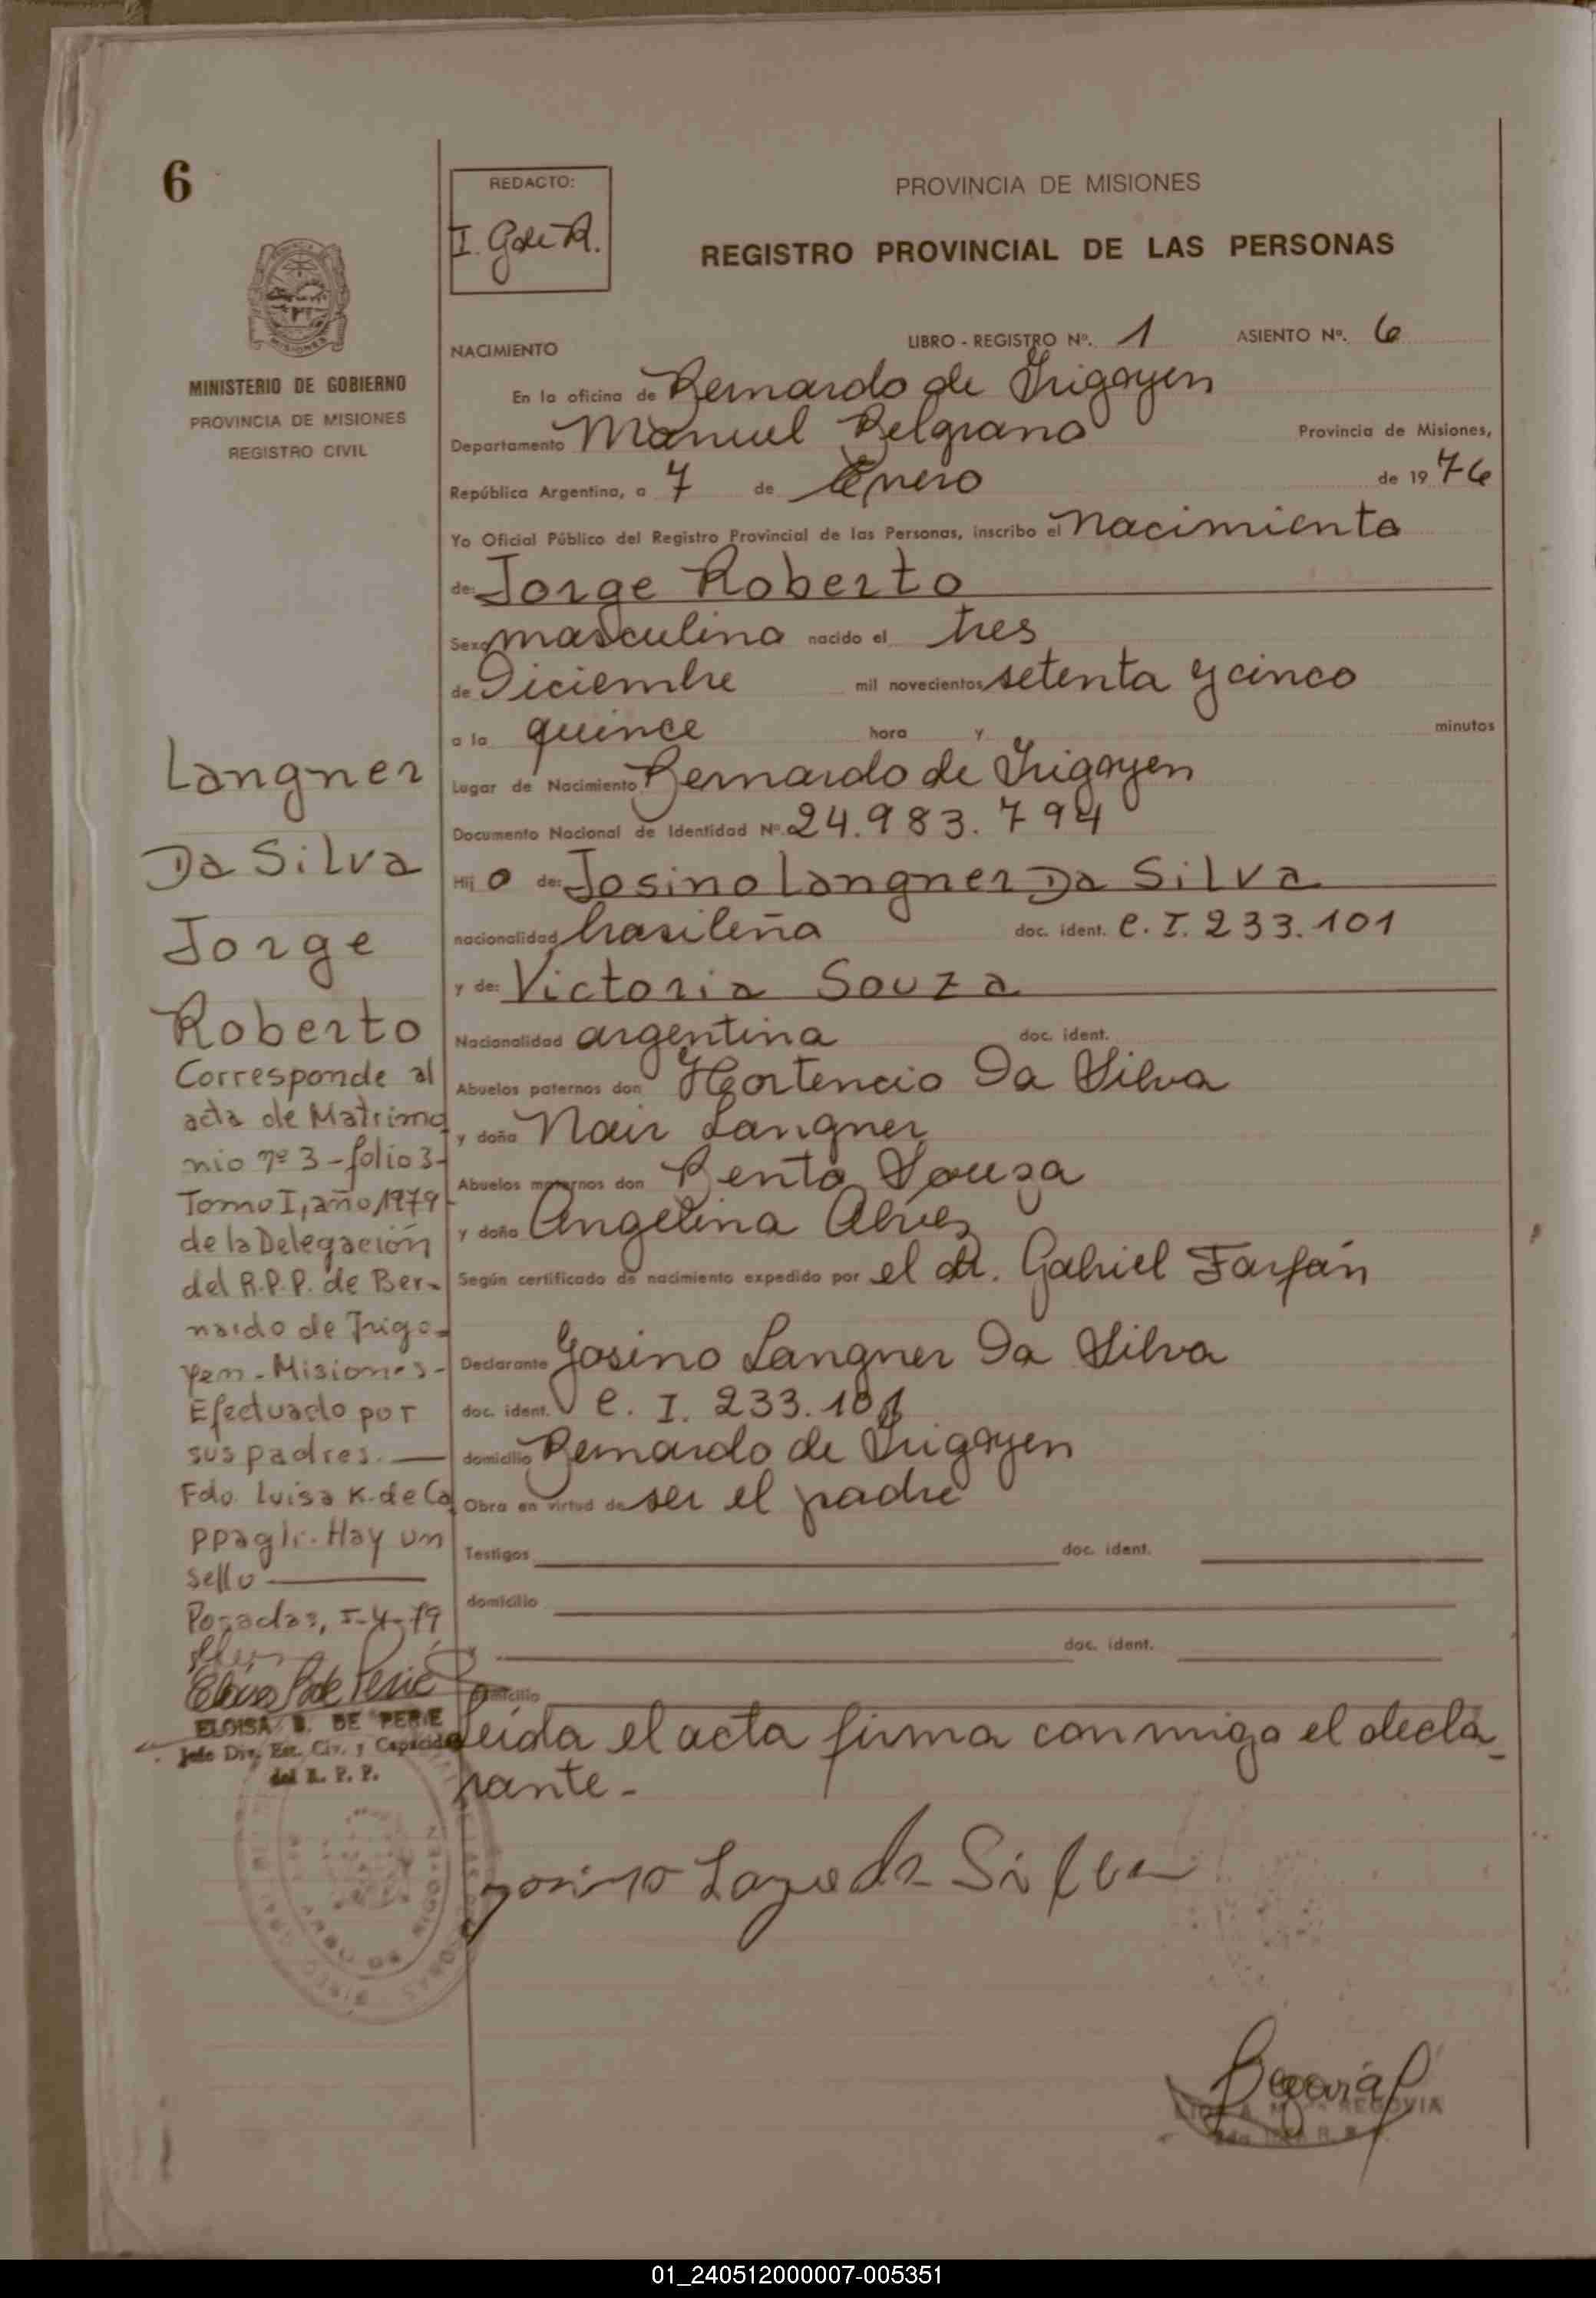 6
REDACTO:
I. G de R.
PROVINCIA DE MISIONES
REGISTRO PROVINCIAL DE LAS PERSONAS
MINISTERIO DE GOBIERNO
PROVINCIA DE MISIONES
REGISTRO CIVIL
NACIMIENTO LIBRO - REGISTRO Nº. 1 ASIENTO Nº. 6
En la oficina de Bernardo de Irigoyen
Departamento Manuel Belgrano Provincia de Misiones,
República Argentina, a 7 de Enero de 1976
Yo Oficial Público del Registro Provincial de las Personas, inscribo el nacimiento
de: Jorge Roberto
Sexo masculino nacido el tres
de Diciembre mil novecientos setenta y cinco
a la quince hora y minutos
Lugar de Nacimiento Bernardo de Irigoyen
Documento Nacional de Identidad Nº. 24.983.794
Hijo de: Josino Langner Da Silva
nacionalidad brasileña doc. ident. C. I. 233.101
y de: Victoria Souza
Nacionalidad argentina doc. ident.
Abuelos paternos don Hortencio Da Silva
y doña Nair Langner
Abuelos maternos don Bento Souza
y doña Angelina Alves
Según certificado de nacimiento expedido por el dr. Gabriel Farfán
Declarante Josino Langner Da Silva
doc. ident. C. I. 233.101
domicilio Bernardo de Irigoyen
Obra en virtud de ser el padre
Testigos doc. ident.
domicilio
y doc. ident.
domicilio
Leida el acta firma conmigo el decla
rante -
Langner
Da Silva
Jorge
Roberto
Corresponde al
acta de Matrimo
nio nº 3 - folio 3-
Tomo I, año 1979
de la Delegación
del R.P.P. de Ber-
nardo de Irigo-
yen - Misiones -
Efectuado por
sus padres.
Fdo. Luisa K. de Ca
ppagli. Hay un
sello
Posadas, 5-4-79
ELOISA B. DE PERIE
Jefe Div. Est. Civ. y Capacidad
del R. P. P.
Josino da Silva
SEGOVIA
01_240512000007-005351